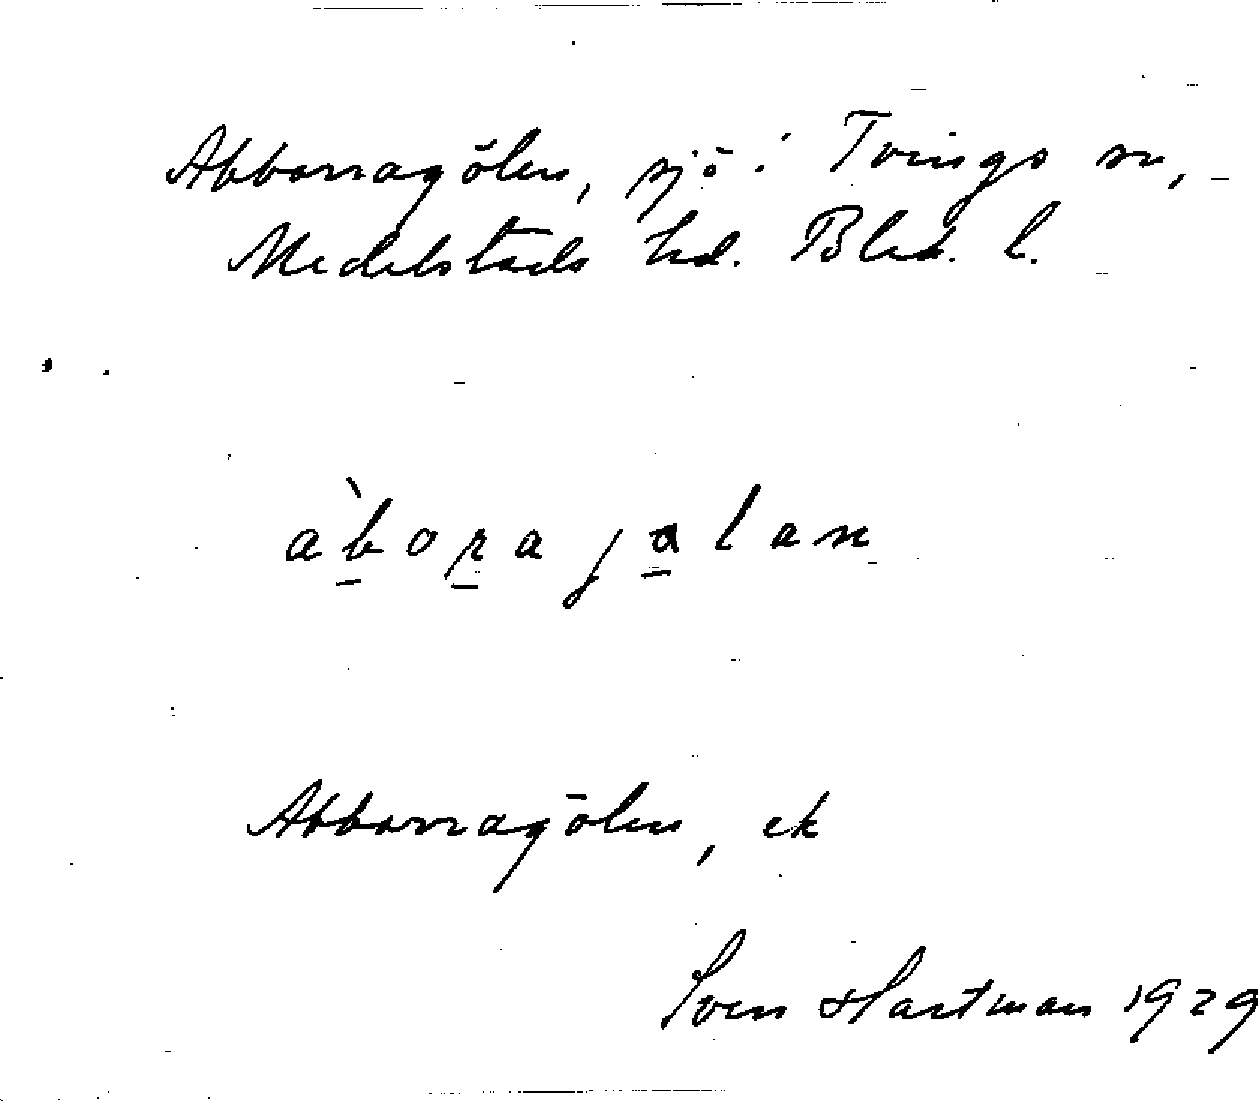 Abborragölen, sjö i Tvings sn,
Medelstads hd. Blek. l.
àborajalan
Abborragölen, ek
Sven Hartman 1929